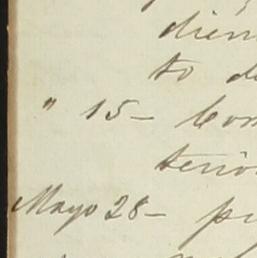 dien
to de
" 15- Com
terior
Mayo 28- p